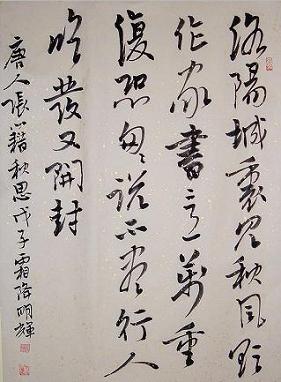 洛陽城裏見秋風欲
作家書意萬重
復恐匆々說不盡行人
臨發又開封
唐人張籍秋思戊子霜降明輝